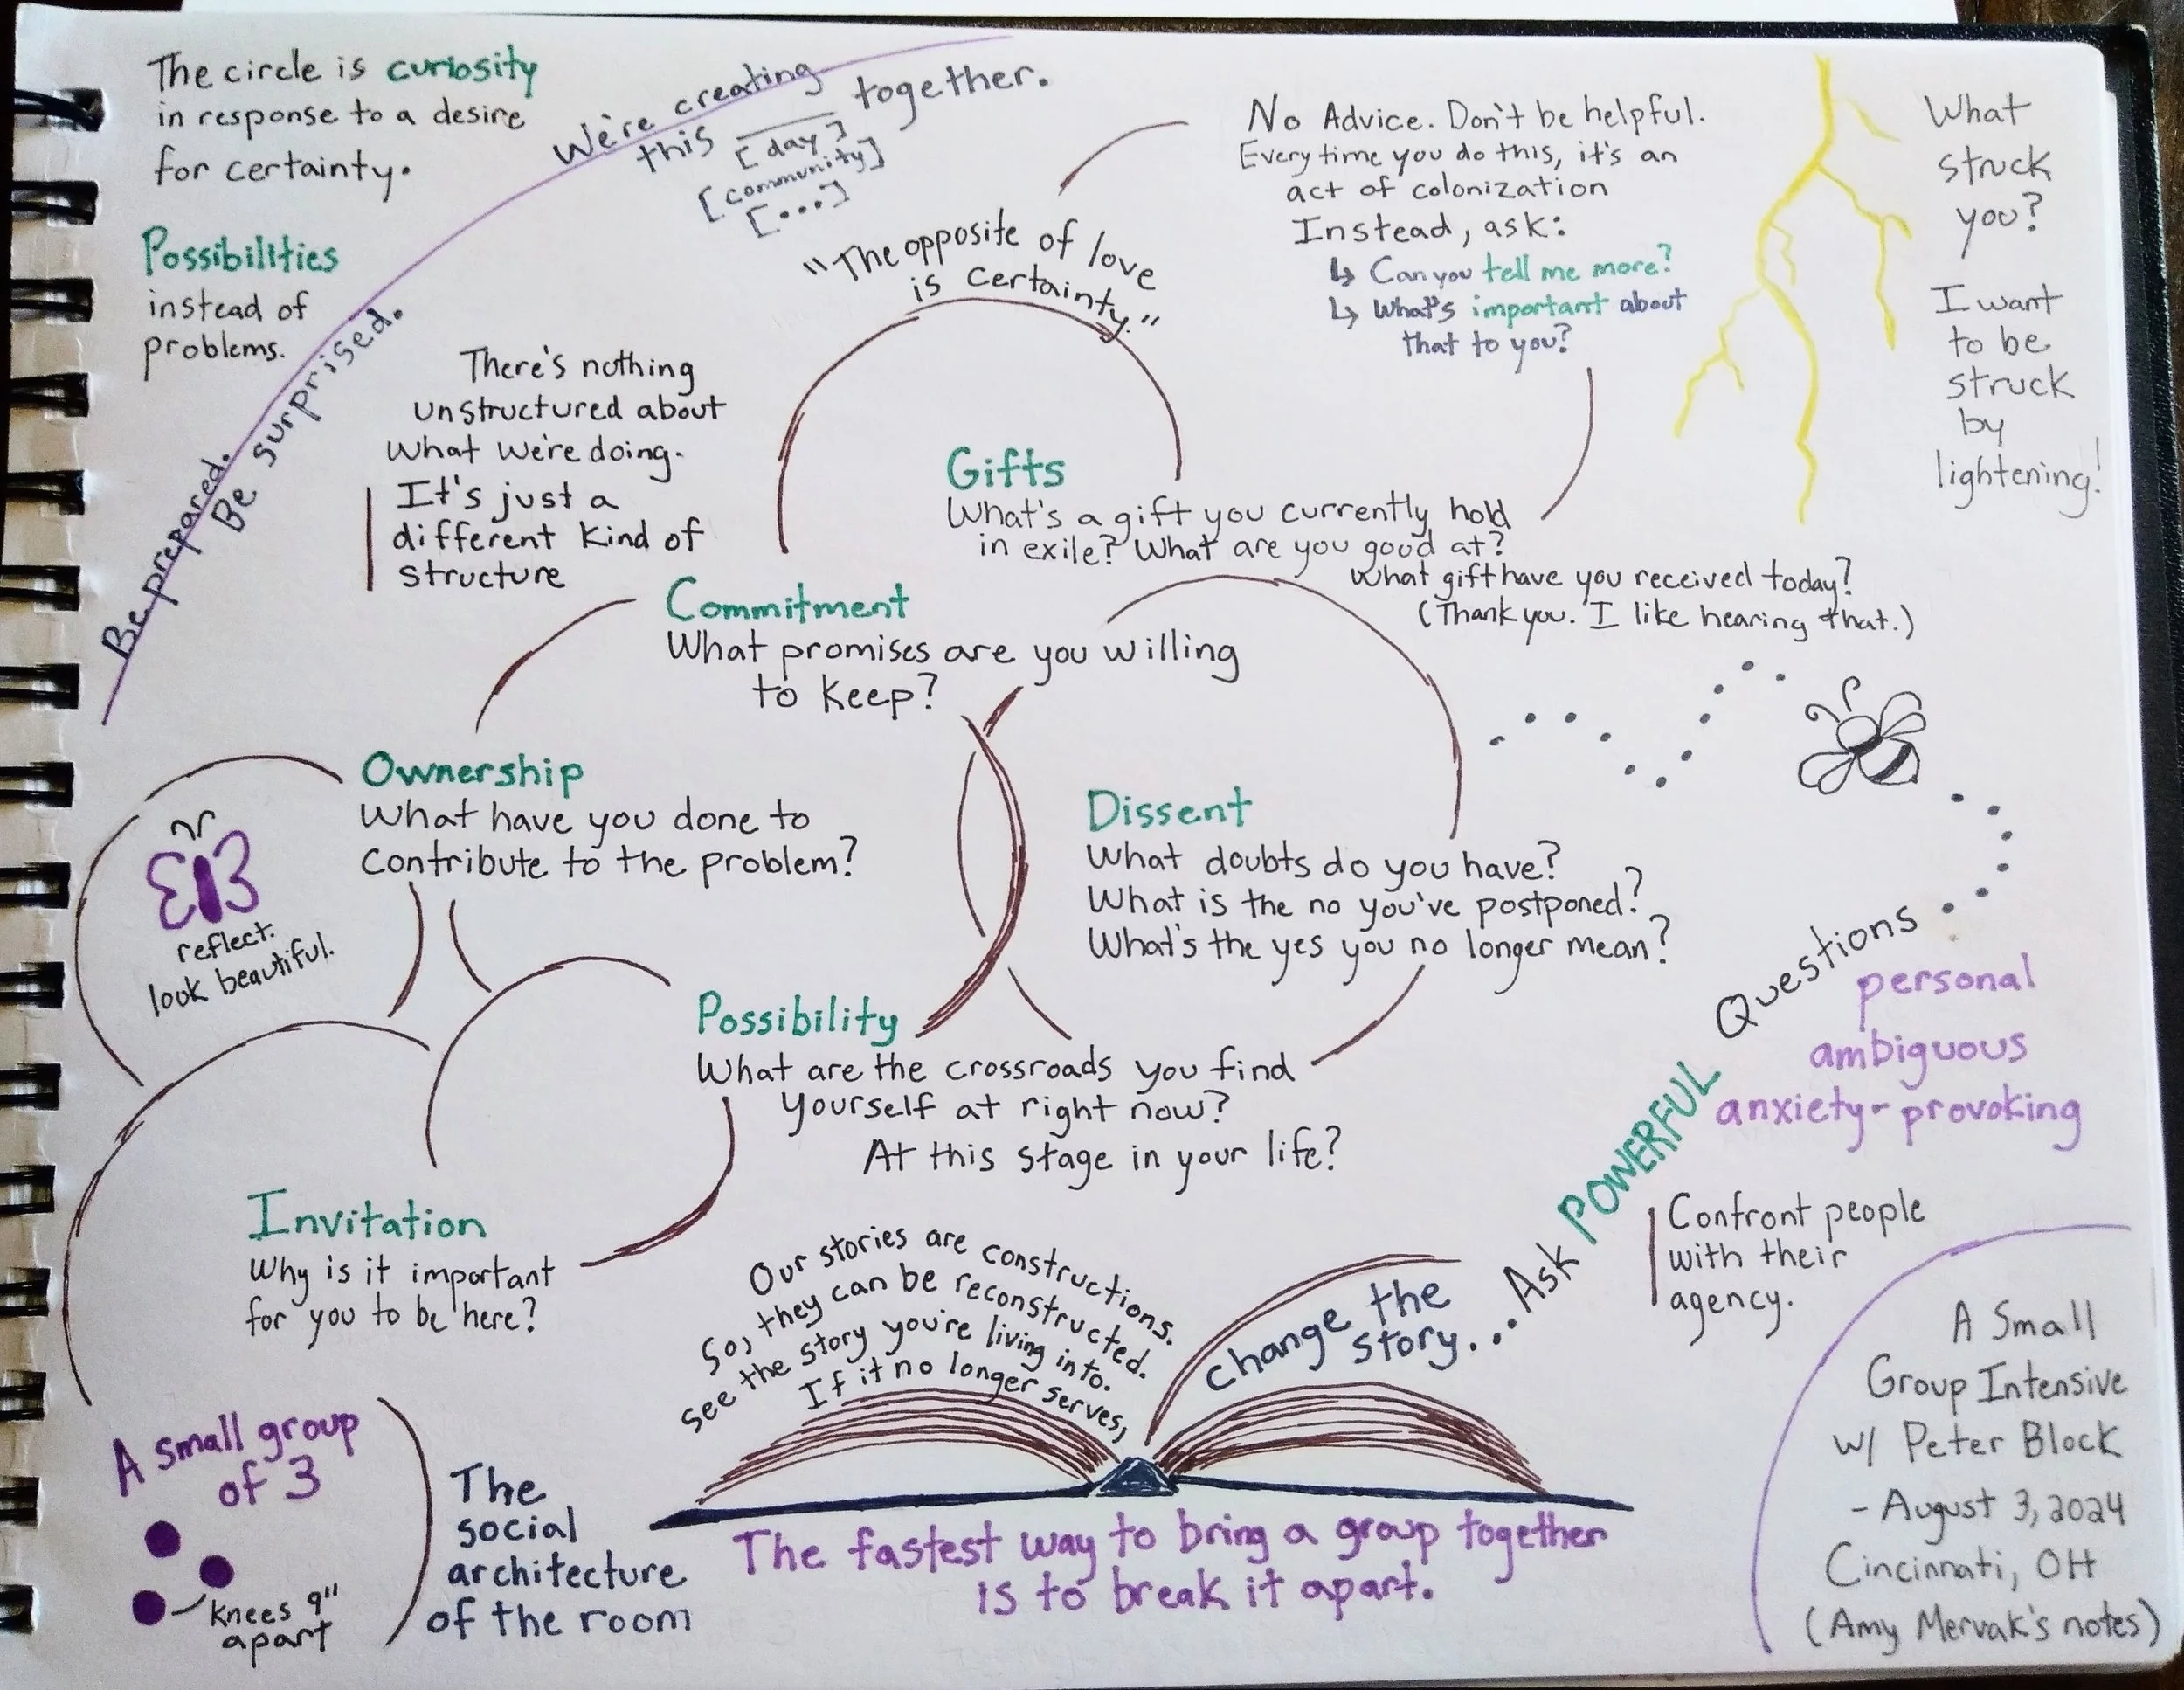 The circle is curiosity
in response to a desire
for certainty.
Possibilities
instead of
problems.
Be prepared.
Be surprised.
We're creating
this ____ together.
[day]
[community]
[...]
There's nothing
unstructured about
what we're doing.
It's just a
different kind of
structure
"The opposite of love
is certainty."
No Advice. Don't be helpful.
Every time you do this, it's an
act of colonization
Instead, ask:
↳ Can you tell me more?
↳ What's important about
that to you?
What
struck
you?
I want
to be
struck
by
lightening!
Gifts
What's a gift you currently hold
in exile? What are you good at?
What gift have you received today?
(Thank you. I like hearing that.)
Commitment
What promises are you willing
to keep?
Ownership
What have you done to
contribute to the problem?
reflect.
look beautiful.
Dissent
What doubts do you have?
What is the no you've postponed?
What's the yes you no longer mean?
Possibility
What are the crossroads you find
yourself at right now?
At this stage in your life?
Invitation
Why is it important
for you to be here?
Our stories are constructions.
So, they can be reconstructed.
see the story you're living into.
If it no longer serves,
change the
story...
Ask POWERFUL Questions
personal
ambiguous
anxiety-provoking
Confront people
with their
agency.
A small group
of 3
knees 9"
apart
The
social
architecture
of the room
The fastest way to bring a group together
is to break it apart.
A Small
Group Intensive
w/ Peter Block
- August 3, 2024
Cincinnati, OH
(Amy Mervak's notes)